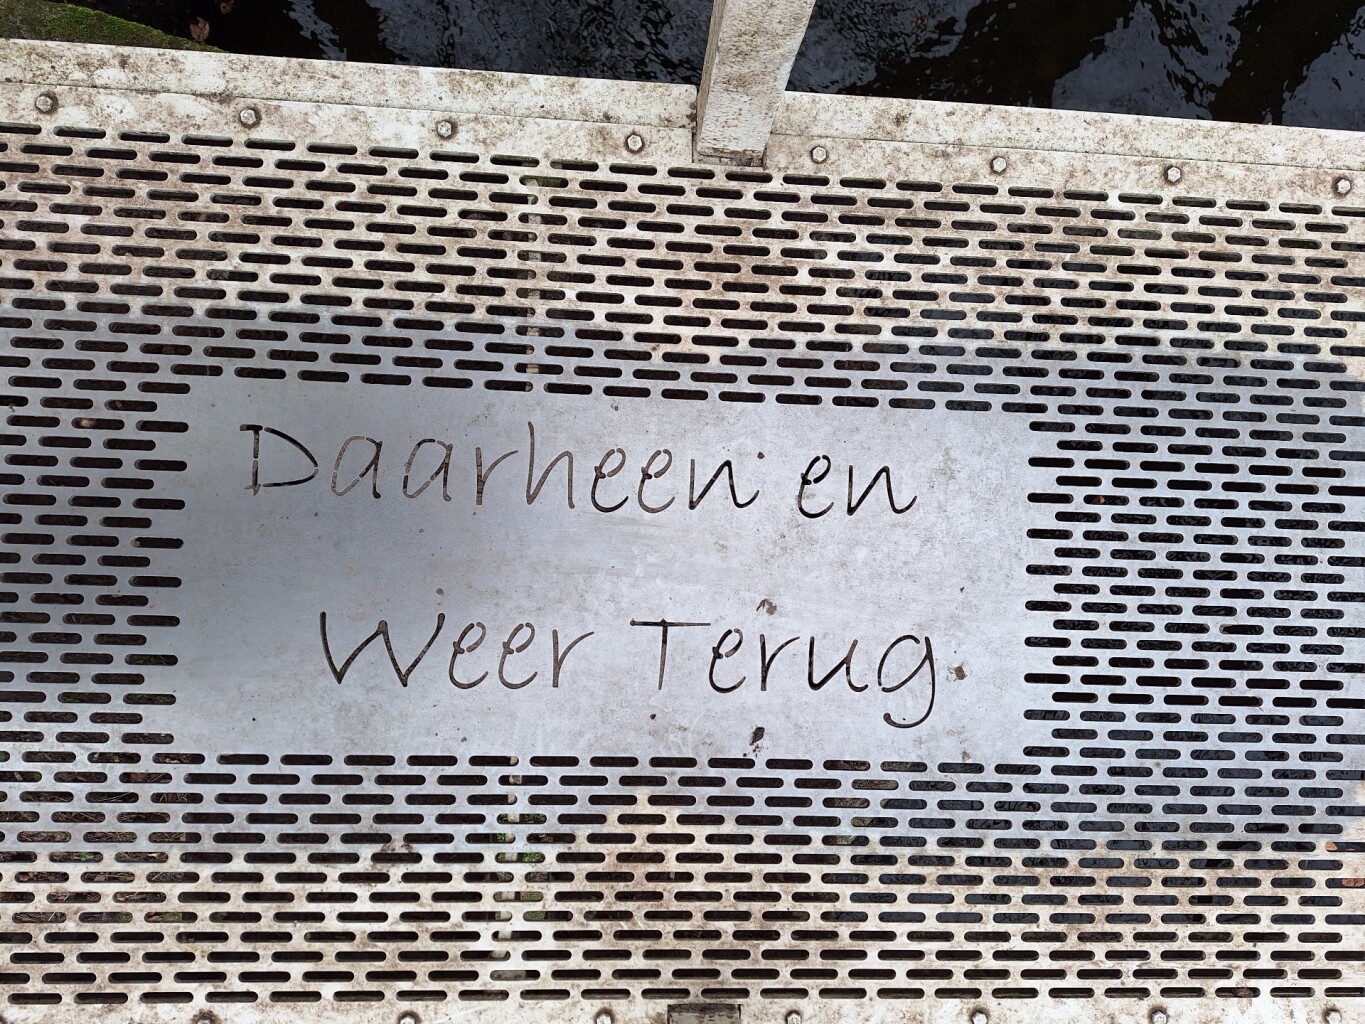 Daarheen en
Weer Terug